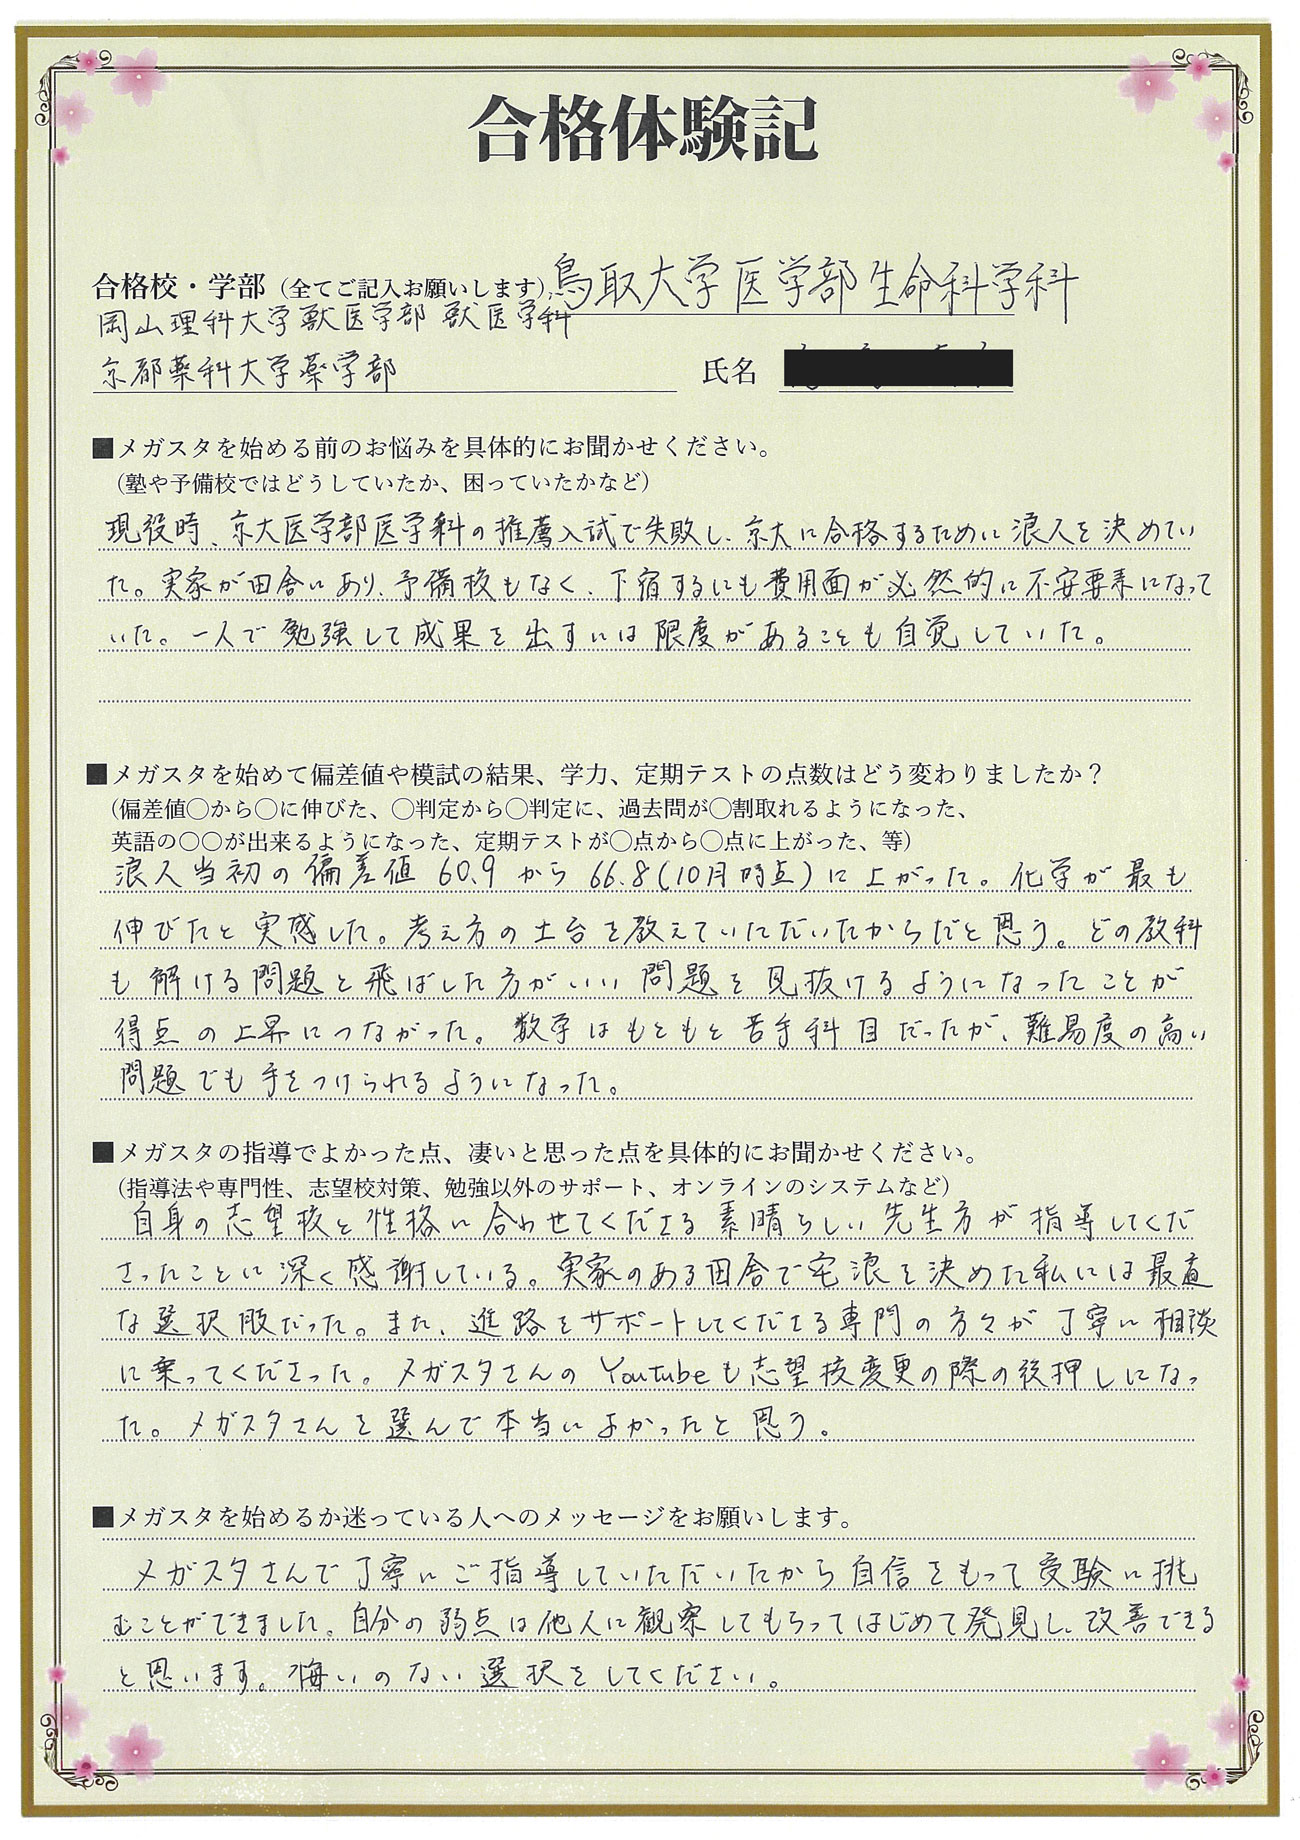 合格体験記
合格校・学部（全てご記入お願いします） 鳥取大学医学部生命科学科
岡山理科大学獣医学部 獣医学科
京都薬科大学薬学部
氏名
■メガスタを始める前のお悩みを具体的にお聞かせください。
（塾や予備校ではどうしていたか、困っていたかなど）
現役時、京大医学部医学科の推薦入試で失敗し、京大に合格するために浪人を決めてい
た。実家が田舎にあり、予備校もなく、下宿するにも費用面が必然的に不安要素になって
いた。一人で勉強して成果を出すには限度があることも自覚していた。
■メガスタを始めて偏差値や模試の結果、学力、定期テストの点数はどう変わりましたか？
（偏差値〇から〇に伸びた、〇判定から〇判定に、過去問が〇割取れるようになった、
英語の〇〇が出来るようになった、定期テストが〇点から〇点に上がった、等）
浪人当初の偏差値 60.9 から 66.8（10月時点）に上がった。化学が最も
伸びたと実感した。考え方の土台を教えていただいたからだと思う。どの教科
も解ける問題と飛ばした方がいい問題を見抜けるようになったことが
得点の上昇につながった。数学はもともと苦手科目だったが、難易度の高い
問題でも手をつけられるようになった。
■メガスタの指導でよかった点、凄いと思った点を具体的にお聞かせください。
（指導法や専門性、志望校対策、勉強以外のサポート、オンラインのシステムなど）
自身の志望校と性格に合わせてくださる素晴らしい先生方が指導してくだ
さったことに深く感謝している。実家のある田舎で宅浪を決めた私には最適
な選択肢だった。また、進路をサポートしてくださる専門の方々が丁寧に相談
に乗ってくださった。メガスタさんのYoutubeも志望校変更の際の後押しになっ
た。メガスタさんを選んで本当によかったと思う。
■メガスタを始めるか迷っている人へのメッセージをお願いします。
メガスタさんで丁寧にご指導していただいたから自信をもって受験に挑
むことができました。自分の弱点は他人に観察してもらってはじめて発見し、改善できる
と思います。悔いのない選択をしてください。